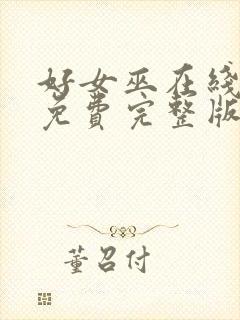 好女巫在线
免费完整版
董召付